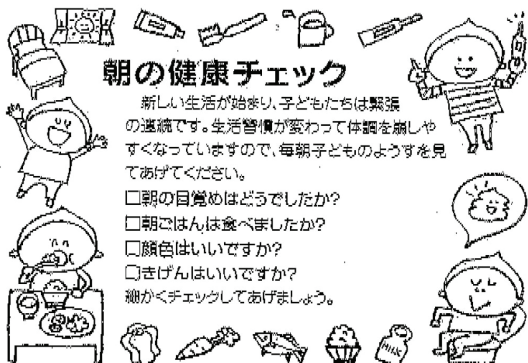 朝の健康チェック
新しい生活が始まり、子どもたちは緊張
の連続です。生活習慣が変わって体調を崩しや
すくなっていますので、毎朝子どものようすを見
てあげてください。
□朝の目覚めはどうでしたか?
□朝ごはんは食べましたか?
□顔色はいいですか?
□きげんはいいですか?
細かくチェックしてあげましょう。
MILK